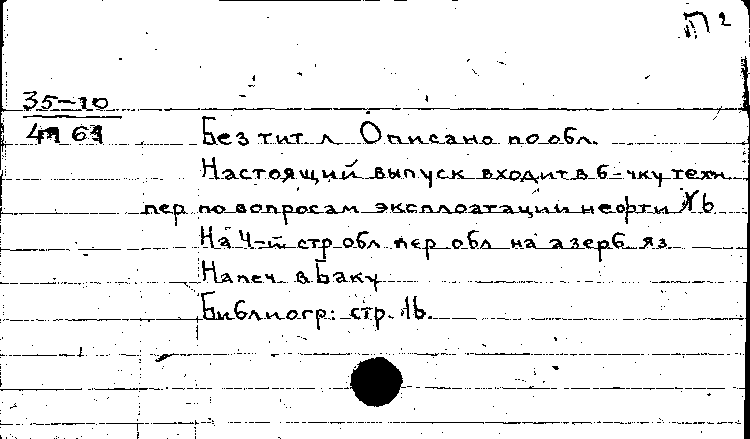 П 2
35-10
Без тит л Описано по обл.
Настоящий выпуск входит в б-чку техн
пер по вопросам эксплоатации нефти
На 4-й стр обл пер обл на азерб яз
Напеч в Баку
Библиогр: стр. 16.